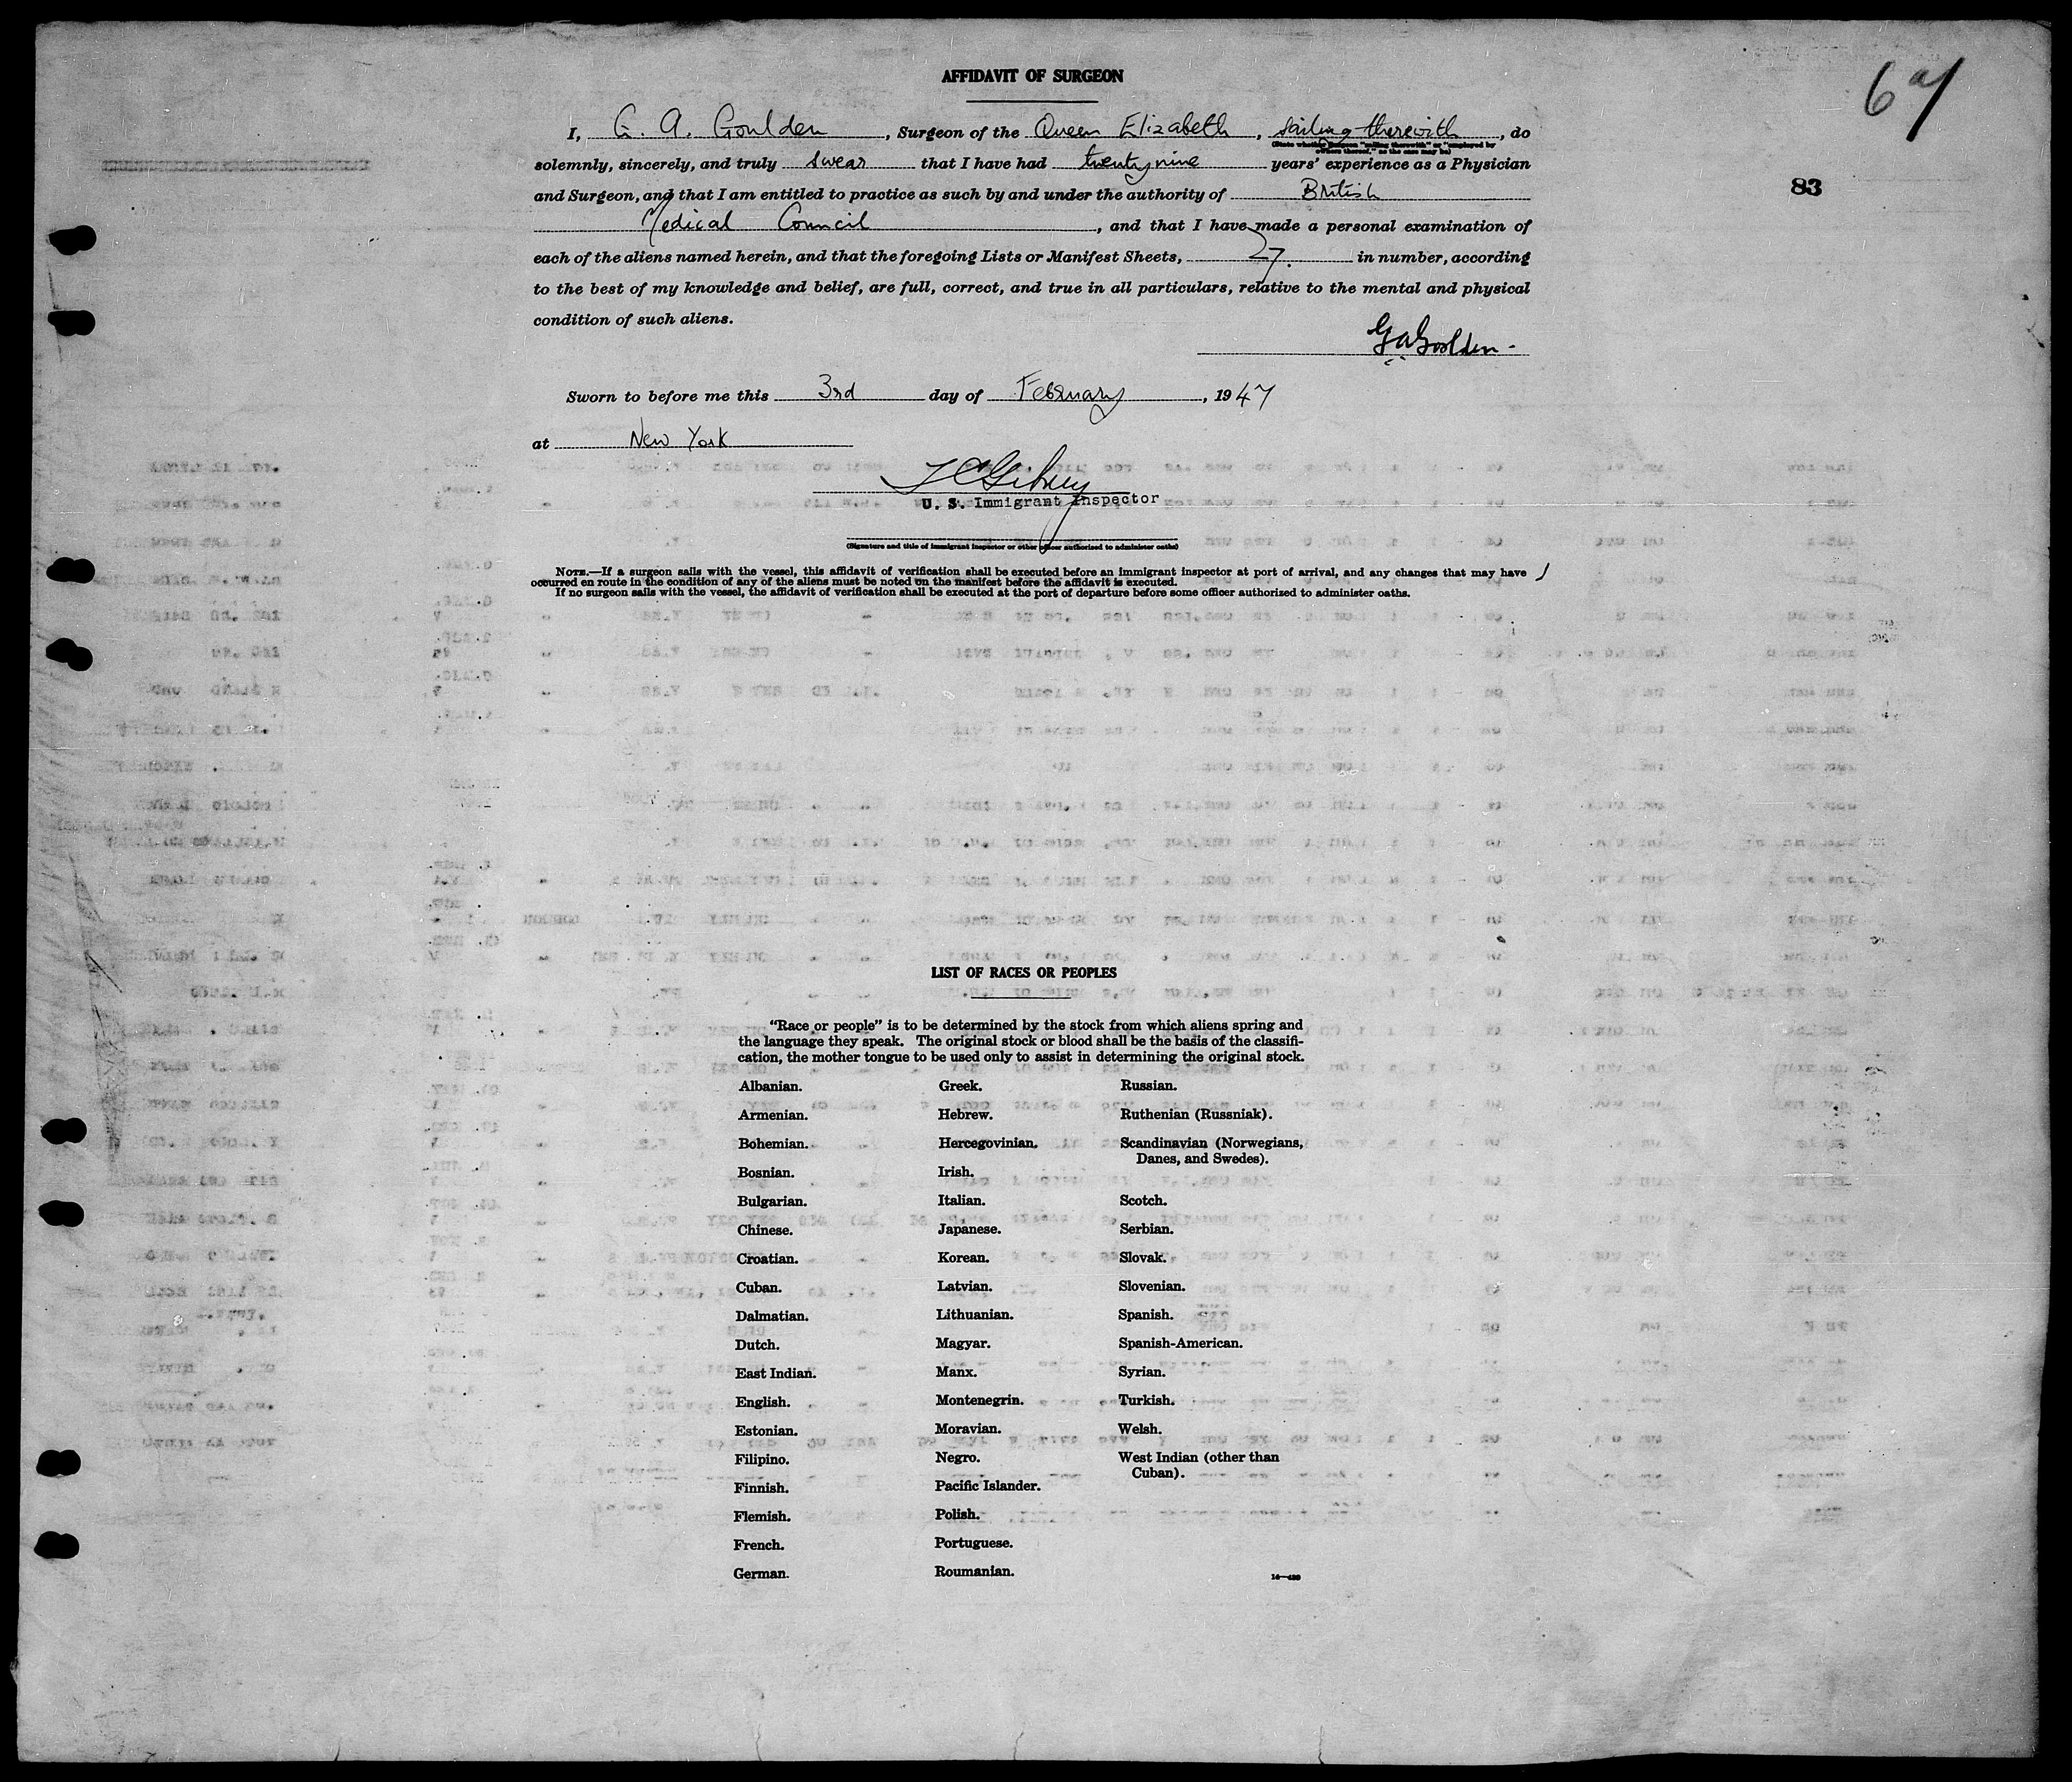 AFFIDAVIT OF SURGEON
I, G. A. Goulden, Surgeon of the Queen Elizabeth, sailing therewith, do
(State whether Surgeon "sailing therewith" or "employed by
owners thereof," as the case may be)
solemnly, sincerely, and truly swear that I have had twenty nine years' experience as a Physician
83
and Surgeon, and that I am entitled to practice as such by and under the authority of British
Medical Council, and that I have made a personal examination of
each of the aliens named herein, and that the foregoing Lists or Manifest Sheets, 27. in number, according
to the best of my knowledge and belief, are full, correct, and true in all particulars, relative to the mental and physical
condition of such aliens.
G A Goulden.
Sworn to before me this 3rd day of February, 1947
at New York
U. S. Immigrant Inspector
(Signature and title of immigrant inspector or other officer authorized to administer oaths)
NOTE.—If a surgeon sails with the vessel, this affidavit of verification shall be executed before an immigrant inspector at port of arrival, and any changes that may have
occurred en route in the condition of any of the aliens must be noted on the manifest before the affidavit is executed.
If no surgeon sails with the vessel, the affidavit of verification shall be executed at the port of departure before some officer authorized to administer oaths.
LIST OF RACES OR PEOPLES
"Race or people" is to be determined by the stock from which aliens spring and
the language they speak. The original stock or blood shall be the basis of the classifi-
cation, the mother tongue to be used only to assist in determining the original stock.
Albanian.
Armenian.
Bohemian.
Bosnian.
Bulgarian.
Chinese.
Croatian.
Cuban.
Dalmatian.
Dutch.
East Indian.
English.
Estonian.
Filipino.
Finnish.
Flemish.
French.
German.
Greek.
Hebrew.
Hercegovinian.
Irish.
Italian.
Japanese.
Korean.
Latvian.
Lithuanian.
Magyar.
Manx.
Montenegrin.
Moravian.
Negro.
Pacific Islander.
Polish.
Portuguese.
Roumanian.
Russian.
Ruthenian (Russniak).
Scandinavian (Norwegians,
Danes, and Swedes).
Scotch.
Serbian.
Slovak.
Slovenian.
Spanish.
Spanish-American.
Syrian.
Turkish.
Welsh.
West Indian (other than
Cuban).